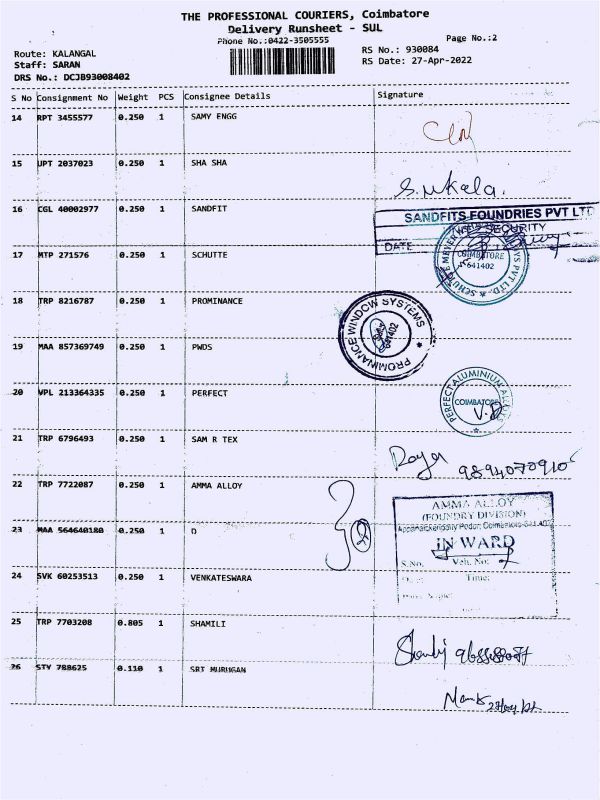 THE PROFESSIONAL COURIERS, Coimbatore
Delivery Runsheet - SUL
Phone No.:0422-3505555
Page No.:2
Route: KALANGAL
RS No.: 930084
Staff: SARAN
RS Date: 27-Apr-2022
DRS No.: DCJB93008402
S No Consignment No Weight PCS Consignee Details Signature
14 RPT 3455577 0.250 1 SAMY ENGG
15 UPT 2037023 0.250 1 SHA SHA
S.Mkala.
16 CGL 40002977 0.250 1 SANDFIT
SANDFITS FOUNDRIES PVT LTD
SECURITY
DATE
17 MTP 271576 0.250 1 SCHUTTE
COIMBATORE
641402
18 TRP 8216787 0.250 1 PROMINANCE
PROMINANCE WINDOW SYSTEMS
641402
19 MAA 857369749 0.250 1 PWDS
20 VPL 213364335 0.250 1 PERFECT
PERFECT ALUMINIUM ALLOYS
COIMBATORE
21 TRP 6796493 0.250 1 SAM R TEX
9894070910
22 TRP 7722087 0.250 1 AMMA ALLOY
AMMA ALLOY
(FOUNDRY DIVISION)
23 MAA 564640180 0.250 1 D
IN WARD
S.No. Veh. No:
24 SVK 60253513 0.250 1 VENKATESWARA
Time:
25 TRP 7703208 0.805 1 SHAMILI
26 STY 788625 0.110 1 SRI MURUGAN